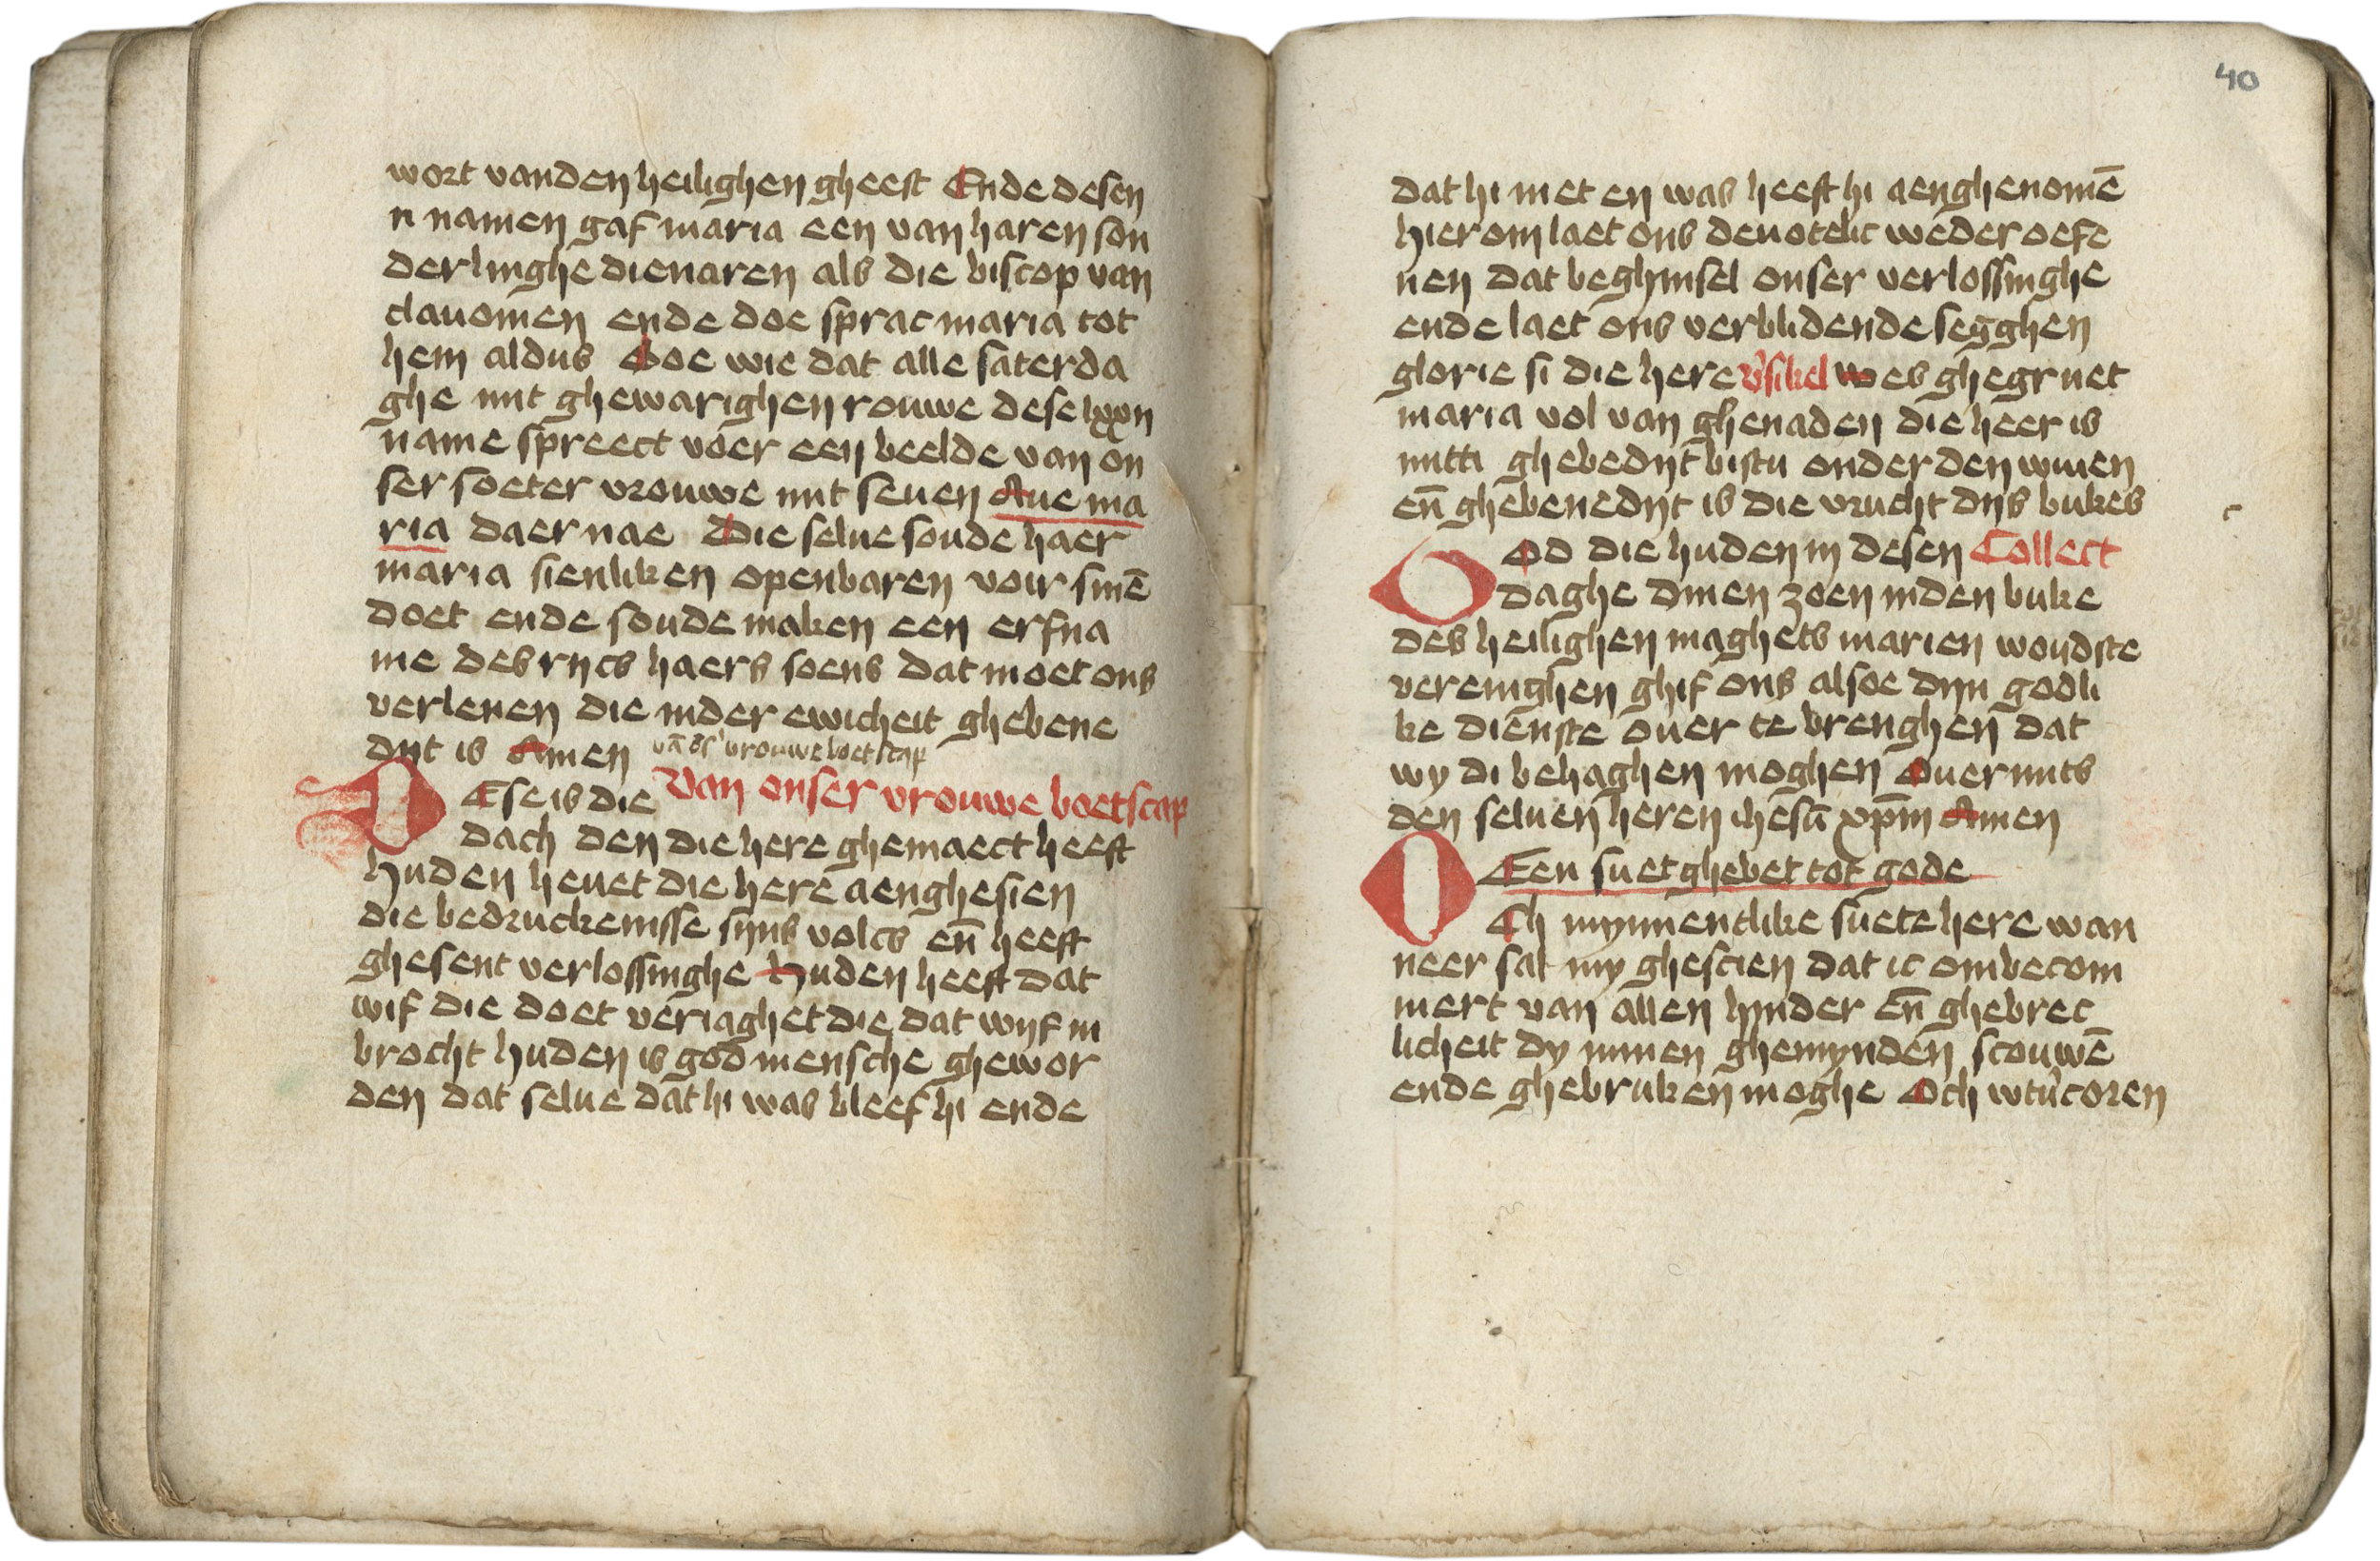 wort vanden heilighen gheest Ende desen
n namen gaf maria een van haren son
derlinghe dienaren als die biscop van
clauomen ende doe sprac maria tot
hem aldus Soe wie dat alle saterda
ghe mit ghewarighen rouwe dese lxxii
name spreect voer een beelde van on
ser soeter vrouwe mit seuen Aue ma
ria daer nae Die selue soude haer
maria sienliken openbaren voir sinē
doet ende soude maken een erfna
me des rijcs haers soens dat moet ons
verlenen die inder ewicheit ghebene
dijt is Amen vā ōs' vrouwe boetscap
DEse is die Van onser vrouwe boetscap
dach den die here ghemaect heeft
huden heuet die here aenghesien
die bedruckenisse sijns volcs en̄ heeft
ghesent verlossinghe Huden heeft dat
wif die doet veriaghet die dat wijf in
brocht huden is god mensche ghewor
den dat selue dat hi was bleef hi ende
40
dat hi niet en was heeft hi aenghenomē
hier om laet ons deuotelic weder oefe
nen dat beghinsel onser verlossinghe
ende laet ons verblidende segghen
glorie si die here v'sikel Wes ghegruet
maria vol van ghenaden die heer is
mitti ghebedijt bistu onder den wiuen
en̄ ghebenedijt is die vrucht dijs bukes
GOd die huden in desen Collect
daghe dinen zoen inden buke
des heilighen maghets marien woudste
verenighen ghif ons alsoe dijn godli
ke dienste ouer te brenghen dat
wy di behaghen moghen Ouermits
den seluen heren ihesū xp̄m Amen
Een suet ghebet tot gode
OCh mynnentlike suete here wan
neer sal my ghescien dat ic ombecom
mert van allen hinder en̄ ghebrec
licheit dy minen ghemynden scouwē
ende ghebruken moghe Och wtu'coren